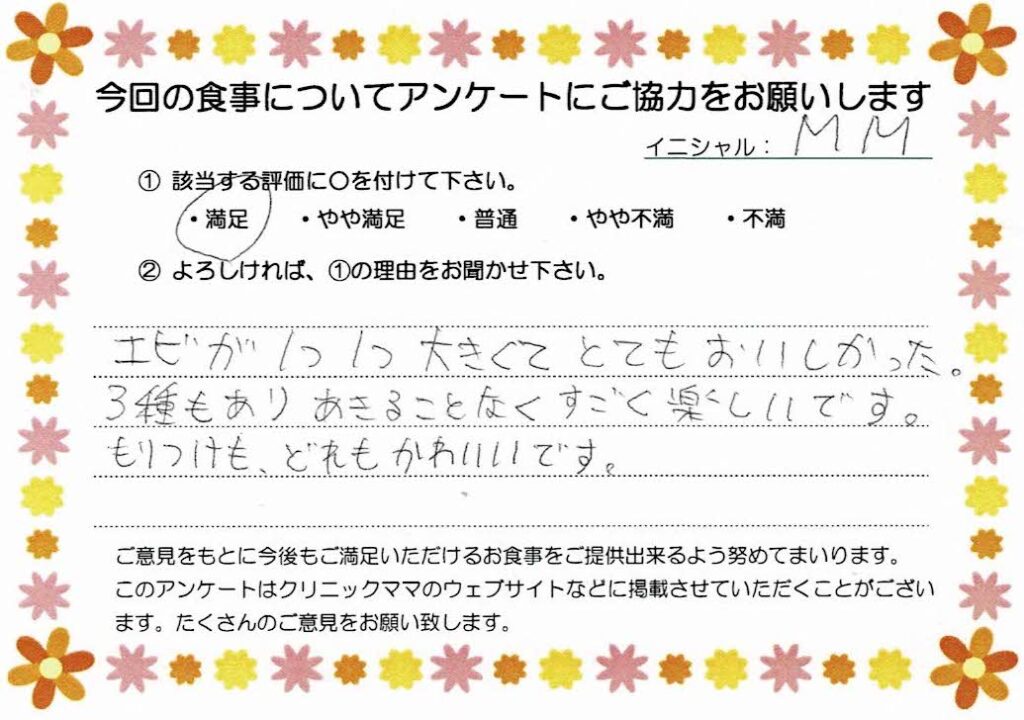 今回の食事についてアンケートにご協力をお願いします
イニシャル： M M
① 該当する評価に〇を付けて下さい。
・満足 ・やや満足 ・普通 ・やや不満 ・不満
② よろしければ、①の理由をお聞かせ下さい。
エビが1つ1つ大きくてとてもおいしかった。
3種もあり あきることなくすごく楽しいです。
もりつけも、どれもかわいいです。
ご意見をもとに今後もご満足いただけるお食事をご提供出来るよう努めてまいります。
このアンケートはクリニックママのウェブサイトなどに掲載させていただくことがござい
ます。たくさんのご意見をお願い致します。